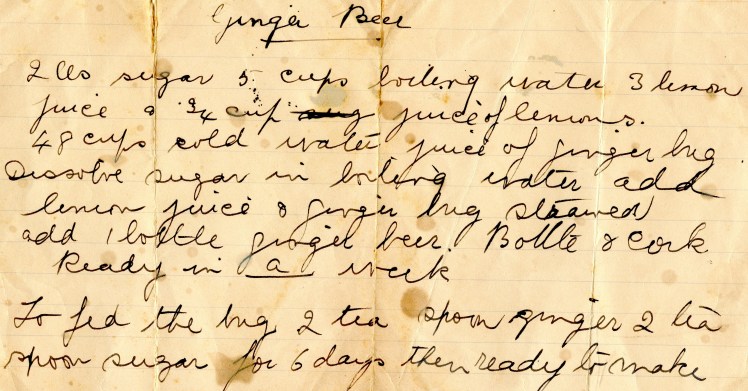 Ginger Beer
2 lbs sugar 5 cups boiling water 3 lemon
juice or 3/4 cup juice of lemons.
48 cups cold water juice of ginger bug
Dissolve sugar in boiling water add
lemon juice & ginger bug strained
add 1 bottle ginger beer. Bottle & Cork
Ready in a week
To fed the bug 2 tea spoon ginger 2 tea
spoon sugar for 6 days then ready to make